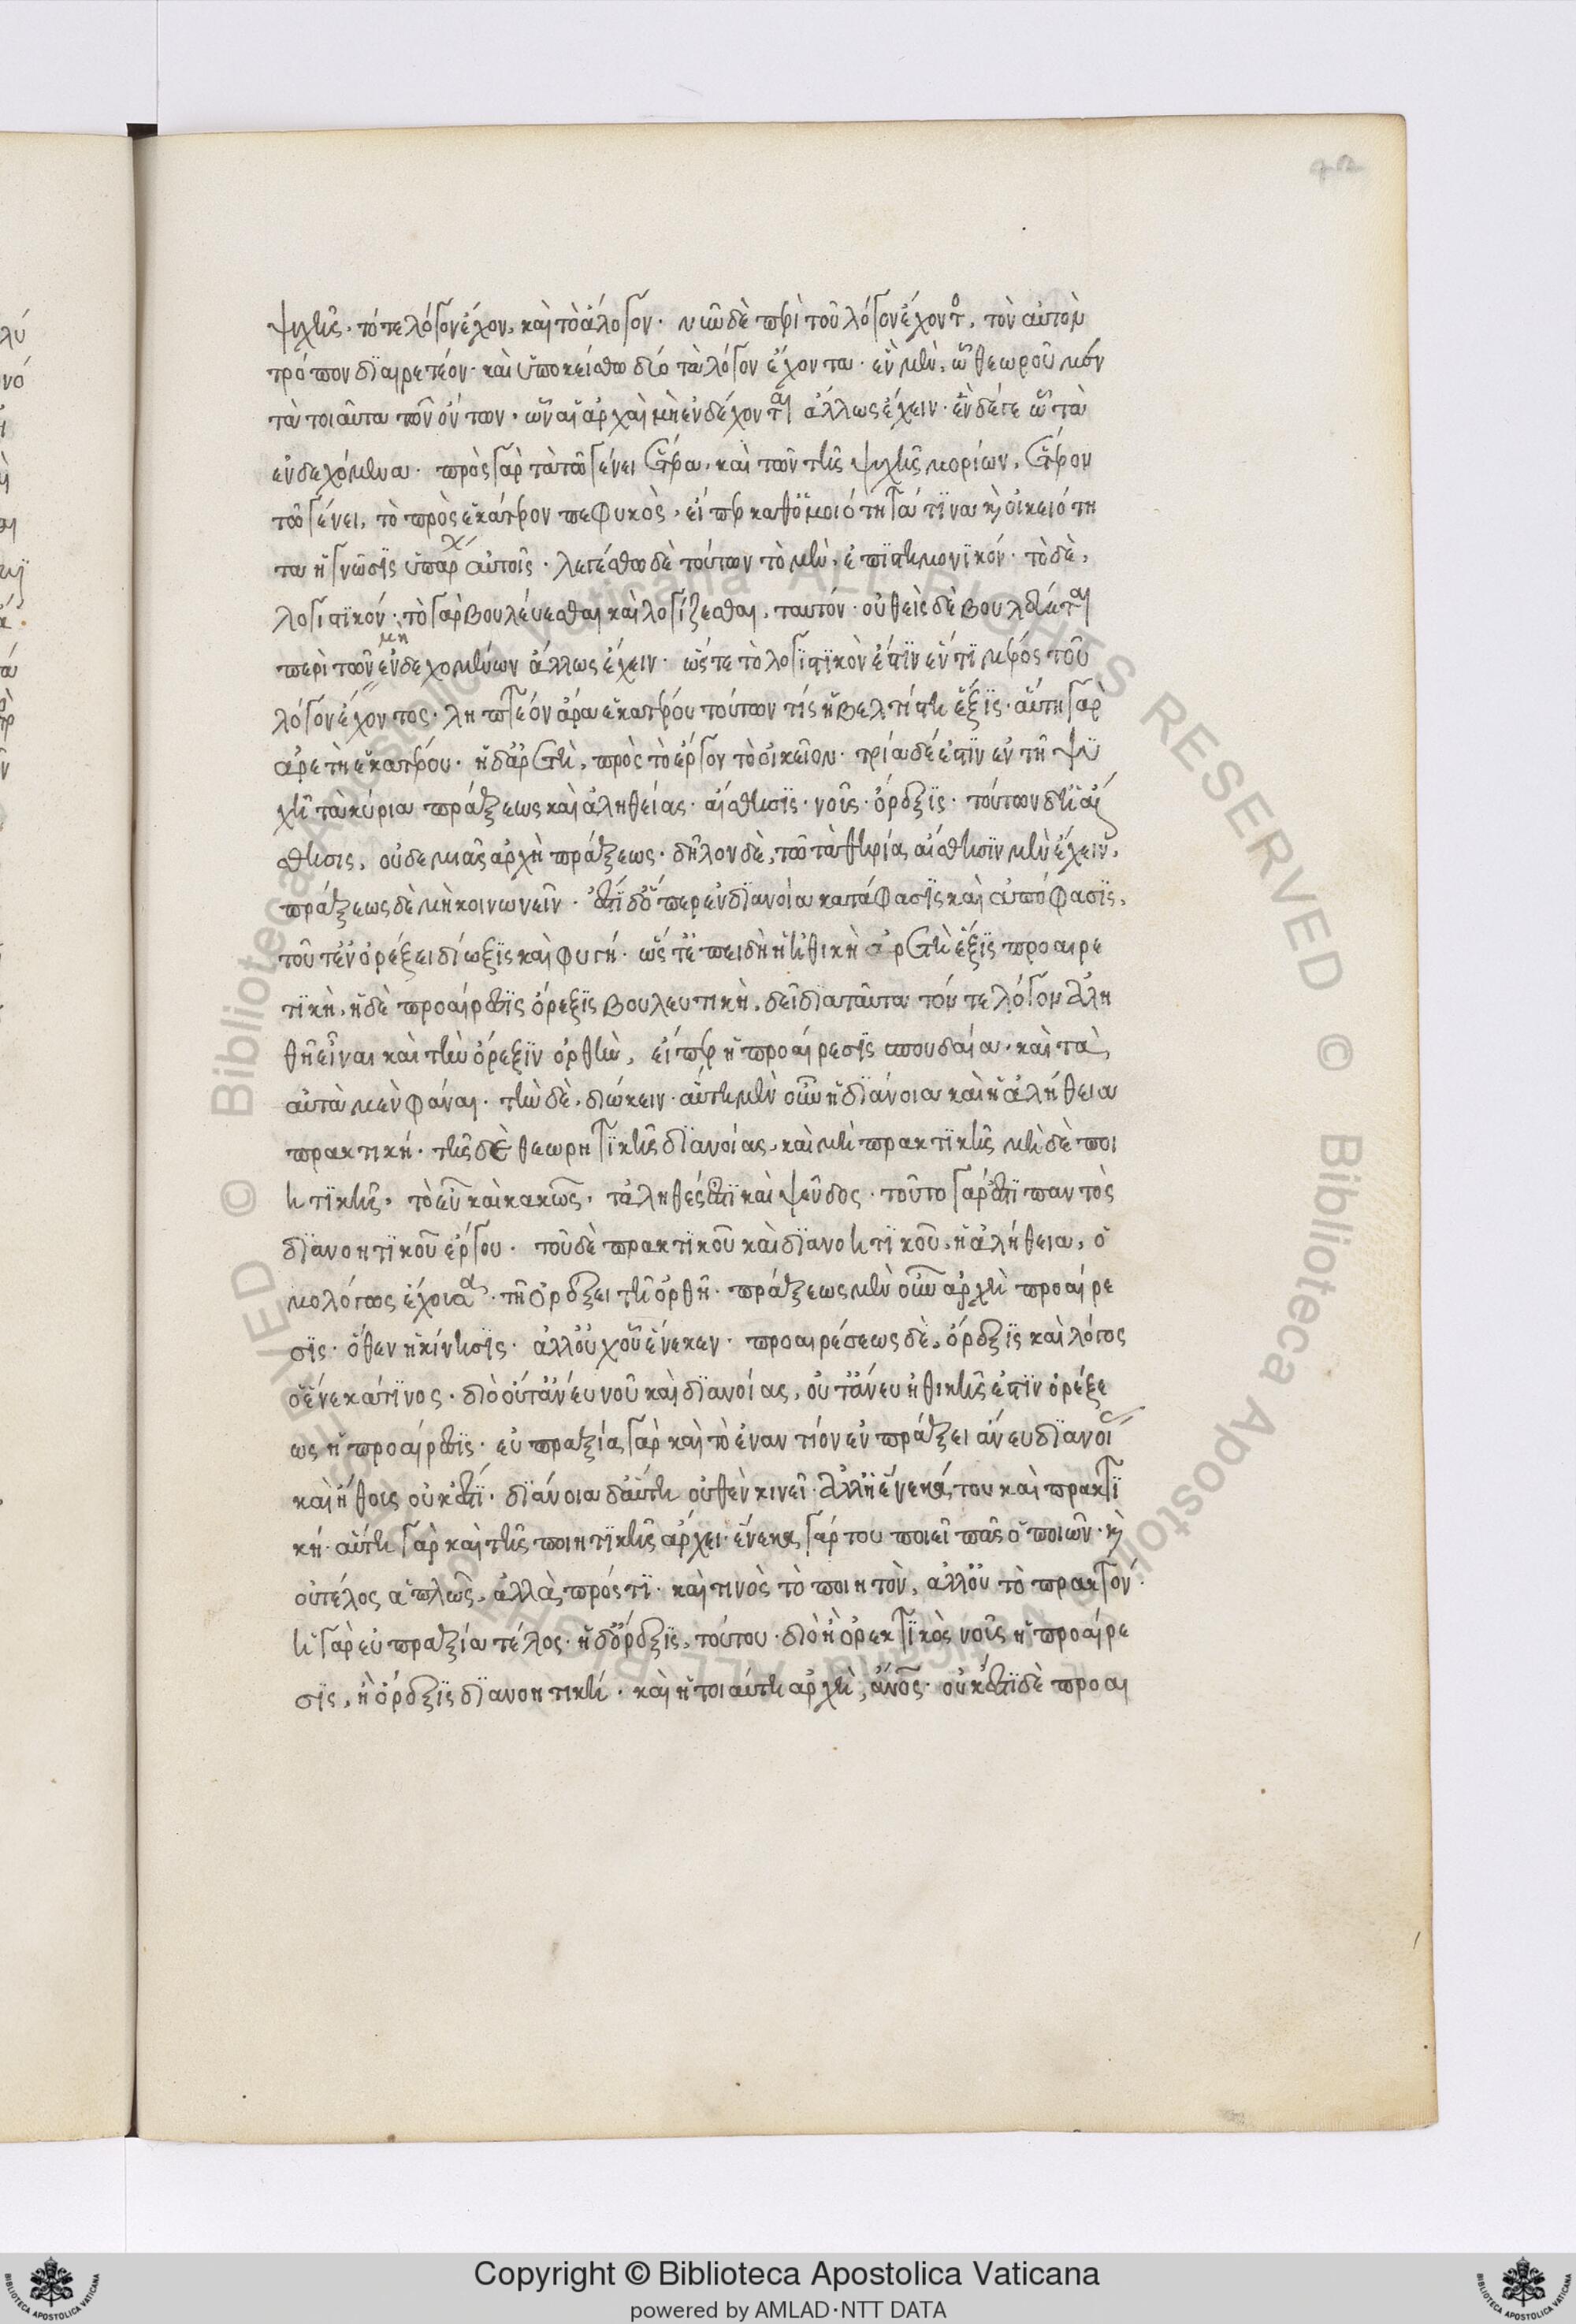 ψυχῆς. τό τε λόγον ἔχον, καὶ τὸ ἄλογον. νῦν δὲ περὶ τοῦ λόγον ἔχοντος, τὸν αὐτὸν
τρόπον διαιρετέον. καὶ ὑποκείσθω δύο τὰ λόγον ἔχοντα. ἓν μὲν, ᾧ θεωροῦμεν
τὰ τοιαῦτα τῶν ὄντων. ὧν αἱ ἀρχαὶ μὴ ἐνδέχονται ἄλλως ἔχειν. ἓν δέ γε ᾧ τὰ
ἐνδεχόμενα. πρὸς γὰρ τὰ τῶ γένει ἕτερα, καὶ τῶν τῆς ψυχῆς μορίων, ἕτερον
τῶ γένει, τὸ πρὸς ἑκάτερον πεφυκὸς, εἴπερ καθ' ὁμοιότητά τινα καὶ οἰκειότη
τα ἡ γνῶσις ὑπάρχει αὐτοῖς. λεγέσθω δὲ τούτων τὸ μὲν, ἐπιστημονικόν. τὸ δὲ,
λογιστικόν. τὸ γὰρ βουλεύεσθαι καὶ λογίζεσθαι, ταυτόν. οὐθεὶς δὲ βουλεύεται
περὶ τῶν μὴ ἐνδεχομένων ἄλλως ἔχειν. ὥστε τὸ λογιστικὸν ἐστὶν ἕν τι μέρος τοῦ
λόγον ἔχοντος. ληπτέον ἄρα ἑκατέρου τούτων τίς ἡ βελτίστη ἕξις. αὕτη γὰρ
ἀρετὴ ἑκατέρου. ἡ δ' ἀρετὴ, πρὸς τὸ ἔργον τὸ οἰκεῖον. τρία δέ ἐστιν ἐν τῇ ψυ
χῇ τὰ κύρια πράξεως καὶ ἀληθείας. αἴσθησις. νοῦς. ὄρεξις. τούτων δ' ἡ αἴ
σθησις, οὐδεμιᾶς ἀρχὴ πράξεως. δῆλον δὲ, τῶ τὰ θηρία αἴσθησιν μὲν ἔχειν,
πράξεως δὲ μὴ κοινωνεῖν. ἔστι δ' ὅπερ ἐν διανοία κατάφασις καὶ ἀπόφασις,
τοῦτ' ἐν ὀρέξει δίωξις καὶ φυγή. ὥστ' ἐπειδὴ ἡ ἠθικὴ ἀρετὴ ἕξις προαιρε
τικὴ, ἡ δὲ προαίρεσις ὄρεξις βουλευτικὴ, δεῖ διὰ ταῦτα τόν τε λόγον ἀλη
θῆ εἶναι καὶ τὴν ὄρεξιν ὀρθὴν, εἴπερ ἡ προαίρεσις σπουδαία. καὶ τὰ
αὐτὰ μὲν φάναι. τὴν δὲ, διώκειν. αὕτη μὲν οὖν ἡ διάνοια καὶ ἡ ἀλήθεια
πρακτική. τῆς δὲ θεωρητικῆς διανοίας, καὶ μὴ πρακτικῆς μὴδὲ ποι
ητικῆς, τὸ εὖ καὶ κακῶς, τἀληθές ἐστι καὶ ψεῦδος. τοῦτο γάρ ἐστι παντὸς
διανοητικοῦ ἔργου. τοῦ δὲ πρακτικοῦ καὶ διανοητικοῦ, ἡ ἀλήθεια, ὁ
μολόγως ἔχουσα. τῇ ὀρέξει τῇ ὀρθῇ. πράξεως μὲν οὖν ἀρχὴ προαίρε
σις. ὅθεν ἡ κίνησις. ἀλλ' οὐχ οὗ ἕνεκεν. προαιρέσεως δὲ, ὄρεξις καὶ λόγος
ὁ ἕνεκά τινος. διὸ οὔτ' ἄνευ νοῦ καὶ διανοίας, οὔτ' ἄνευ ἠθικῆς ἐστὶν ὀρέξε
ως ἡ προαίρεσις. εὐπραξία γὰρ καὶ τὸ ἐναντίον ἐν πράξει ἄνευ διανοίας
καὶ ἤθους οὐκ ἔστι. διάνοια δ' αὕτη οὐθὲν κινεῖ. ἀλλ' ἡ ἕνεκά του καὶ πρακτι
κή. αὕτη γὰρ καὶ τῆς ποιητικῆς ἄρχει. ἕνεκα γάρ του ποιεῖ πᾶς ὁ ποιῶν. καὶ
οὐ τέλος ἁπλῶς, ἀλλὰ πρός τι. καὶ τινὸς τὸ ποιητὸν, ἀλλ' οὐ τὸ πρακτόν.
ἡ γὰρ εὐπραξία τέλος. ἡ δ' ὄρεξις, τούτου. διὸ ἢ ὀρεκτικὸς νοῦς ἡ προαίρε
σις, ἢ ὄρεξις διανοητική. καὶ ἡ τοιαύτη ἀρχὴ, ἄνθρωπος. οὐκ ἔστι δὲ προαι
Copyright © Biblioteca Apostolica Vaticana
powered by AMLAD·NTT DATA